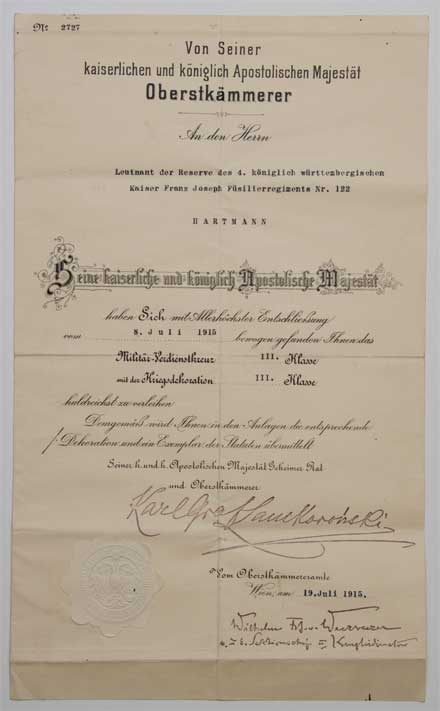 No 2727
Von Seiner
kaiserlichen und königlich Apostolischen Majestät
Oberstkämmerer
An den Herrn
Leutnant der Reserve des 4. königlich württembergischen
Kaiser Franz Joseph Füsilierregiments Nr. 122
HARTMANN
Seine kaiserliche und königlich Apostolische Majestät
haben Sich mit Allerhöchster Entschließung
vom 8. Juli 1915 bewogen gefunden Ihnen das
Militär-Verdienstkreuz III. Klasse
mit der Kriegsdekoration III. Klasse
huldreichst zu verleihen
Demgemäß wird Ihnen in den Anlagen die entsprechende
/. Dekoration und ein Exemplar der Statuten übermittelt.
Seiner k. und k. Apostolischen Majestät Geheimer Rat
und Oberstkämmerer
Karl Graf Lanckoroński
Vom Oberstkämmereramte
Wien, am 19. Juli 1915.
Wilhelm